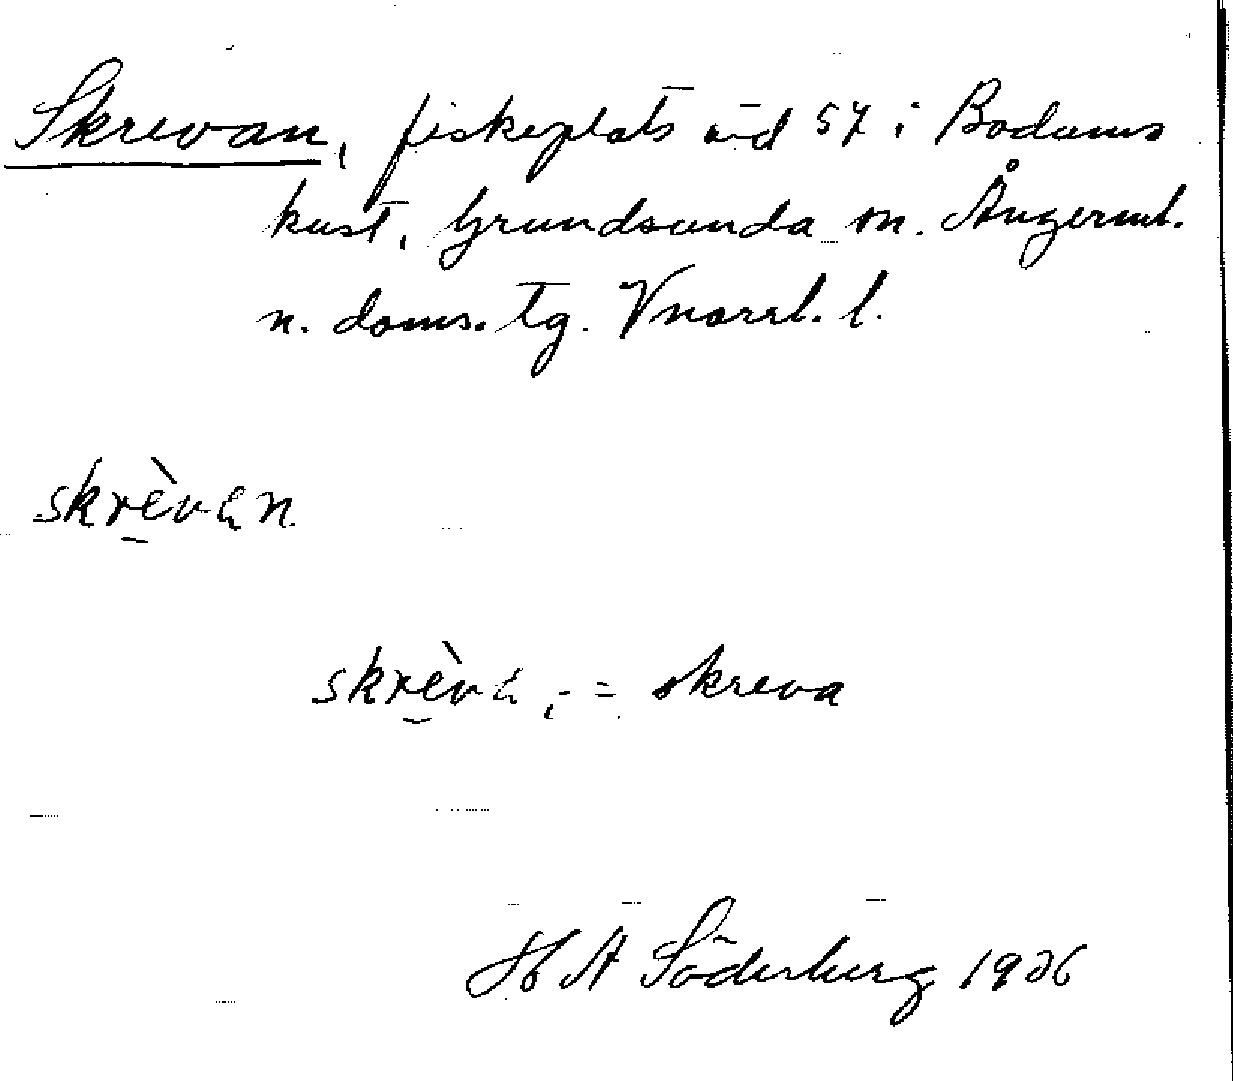 Skrevan, fiskeplats vid 57 i Bodums
kust, Grundsunda sn. Ångerml.
n. doms. tg. Vnorrl. l.
skrèvan
skrèva, = skreva
H A Söderberg 1936